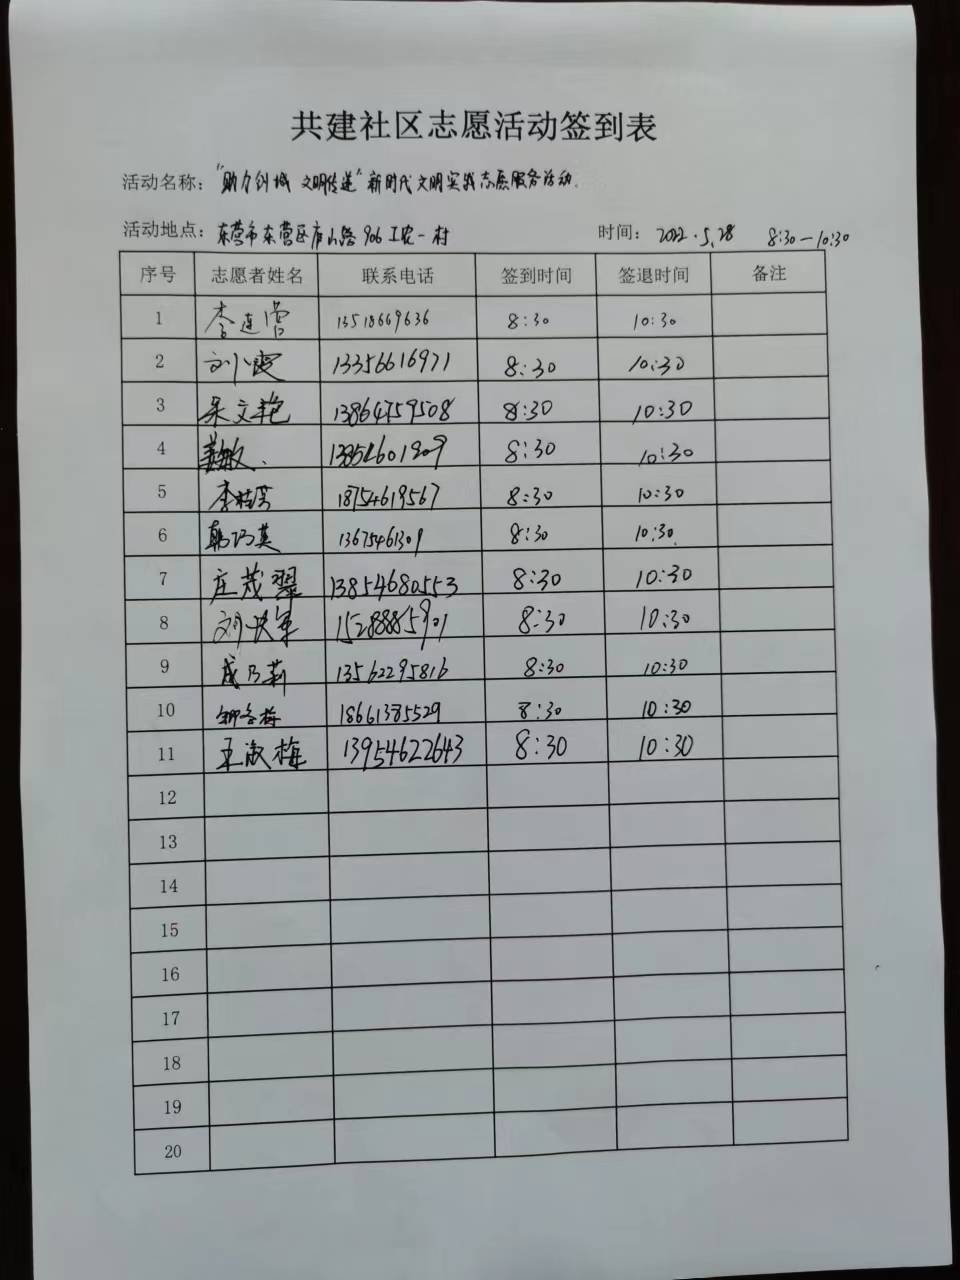 共建社区志愿活动签到表
活动名称：“助力创城 文明传递”新时代文明实践志愿服务活动.
活动地点：东营市东营区庐山路906工农一村 时间：2022.5.28 8:30—10:30
序号 志愿者姓名 联系电话 签到时间 签退时间 备注
1 李连营 13518669636 8:30 10:30
2 刘小霞 13356616971 8:30 10:30
3 吴文艳 13864759508 8:30 10:30
4 姜敏 13854601809 8:30 10:30
5 李桂芳 18754619567 8:30 10:30
6 韩巧英 13675461309 8:30 10:30
7 庄茂翠 13854680553 8:30 10:30
8 刘洪军 15288885901 8:30 10:30
9 成乃莉 13562295816 8:30 10:30
10 18661385529 8:30 10:30
11 王淑梅 13954622643 8:30 10:30
12
13
14
15
16
17
18
19
20